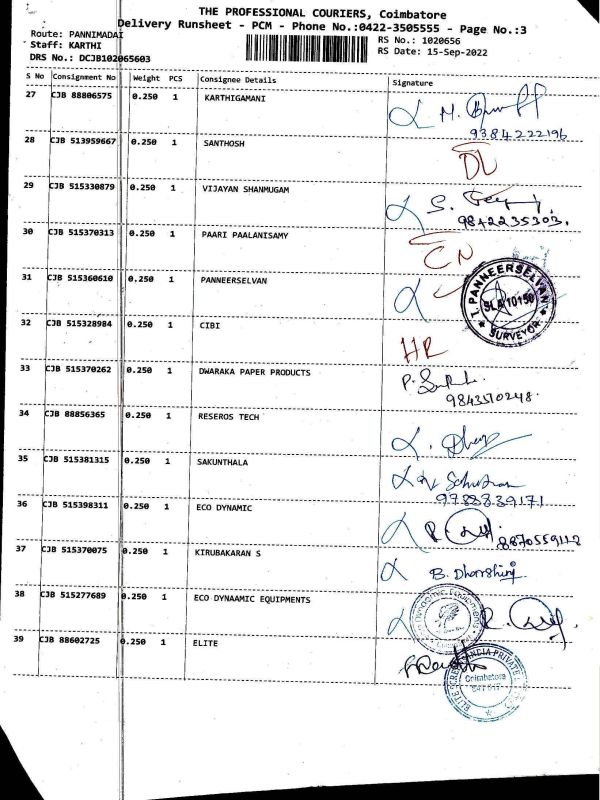 THE PROFESSIONAL COURIERS, Coimbatore
Delivery Runsheet - PCM - Phone No.:0422-3505555 - Page No.:3
Route: PANNIMADAI
Staff: KARTHI
DRS No.: DCJB102065603
RS No.: 1020656
RS Date: 15-Sep-2022
S No Consignment No Weight PCS Consignee Details Signature
27 CJB 88806575 0.250 1 KARTHIGAMANI
9384222196
28 CJB 513959667 0.250 1 SANTHOSH DL
29 CJB 515330879 0.250 1 VIJAYAN SHANMUGAM
9842235303.
30 CJB 515370313 0.250 1 PAARI PAALANISAMY CN
31 CJB 515360610 0.250 1 PANNEERSELVAN
T. PANNEERSELVAN
SLA 10150
SURVEYOR
32 CJB 515328984 0.250 1 CIBI HR
33 CJB 515370262 0.250 1 DWARAKA PAPER PRODUCTS
9843510248.
34 CJB 88856365 0.250 1 RESEROS TECH
35 CJB 515381315 0.250 1 SAKUNTHALA
9788839171
36 CJB 515398311 0.250 1 ECO DYNAMIC
8870559112
37 CJB 515370075 0.250 1 KIRUBAKARAN S B. Dharshini
38 CJB 515277689 0.250 1 ECO DYNAAMIC EQUIPMENTS
39 CJB 88602725 0.250 1 ELITE
Coimbatore